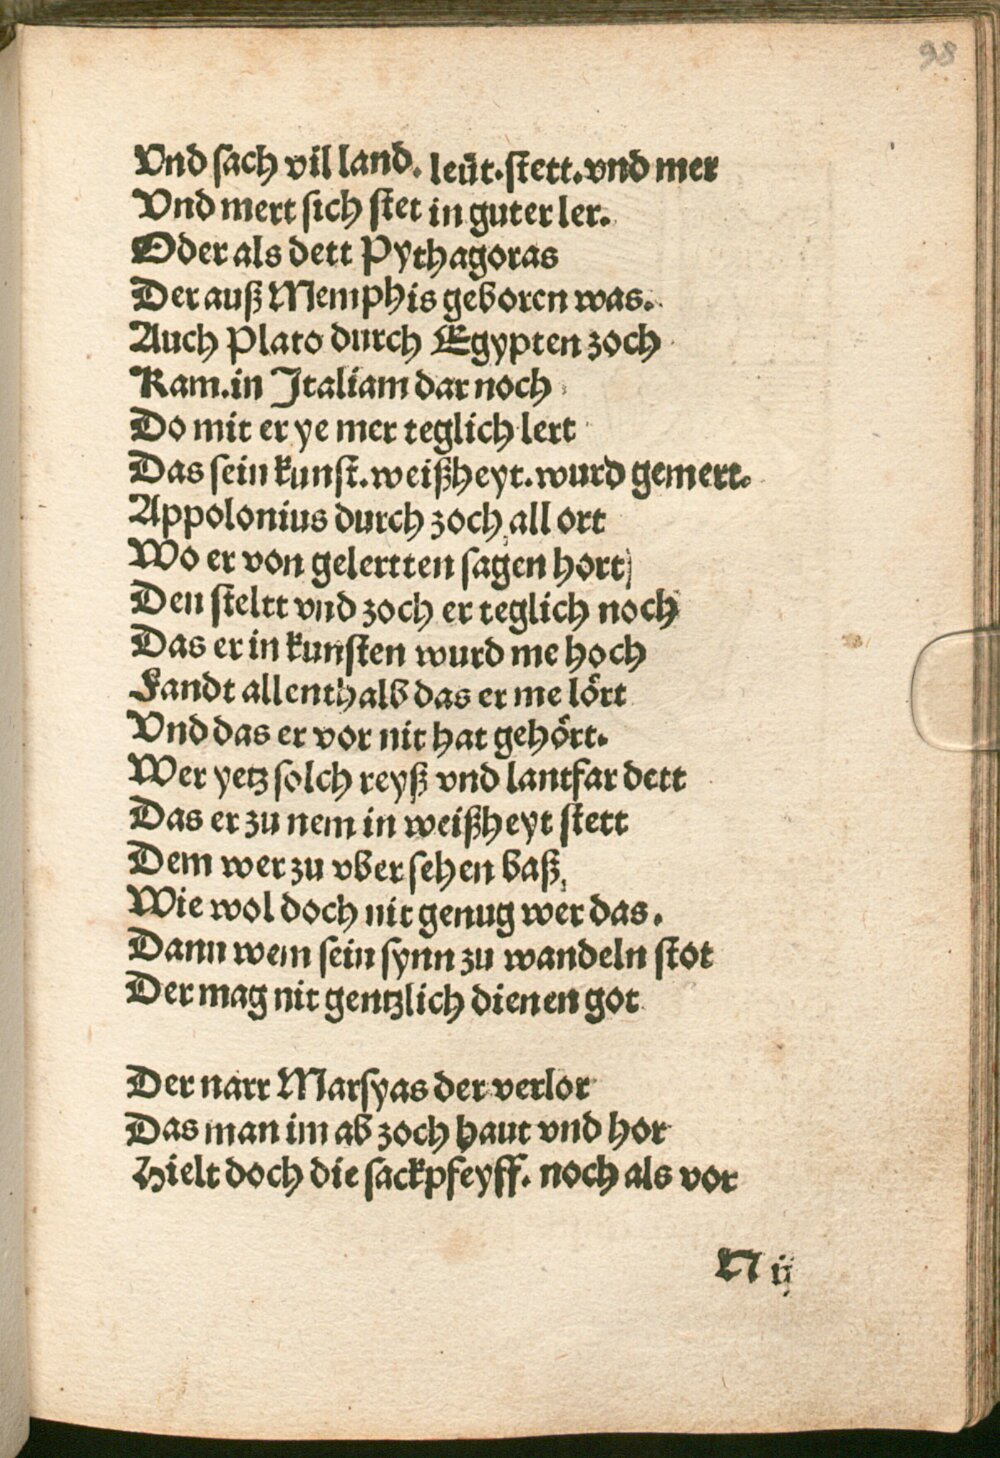 98
Vnd sach vil land. leüt. stett. vnd mer
Vnd mert sich stet in guter ler.
Oder als dett Pythagoras
Der auß Memphis geboren was.
Auch Plato durch Egypten zoch
Kam. in Italiam dar noch
Do mit er ye mer teglich lert
Das sein kunst. weißheyt. wurd gemert.
Appolonius durch zoch all ort
Wo er von gelertten sagen hort
Den steltt vnd zoch er teglich noch
Das er in kunsten wurd me hoch
Fandt allenthalb das er me lört
Vnd das er vor nit hat gehört.
Wer yetz solch reyß vnd lantfar dett
Das er zu nem in weißheyt stett
Dem wer zu vbersehen baß,
Wie wol doch nit genug wer das.
Dann wem sein synn zu wandeln stot
Der mag nit gentzlich dienen got
Der narr Marsyas der verlor
Das man im ab zoch haut vnd hor
Hielt doch die sackpfeyff. noch als vor
N ij